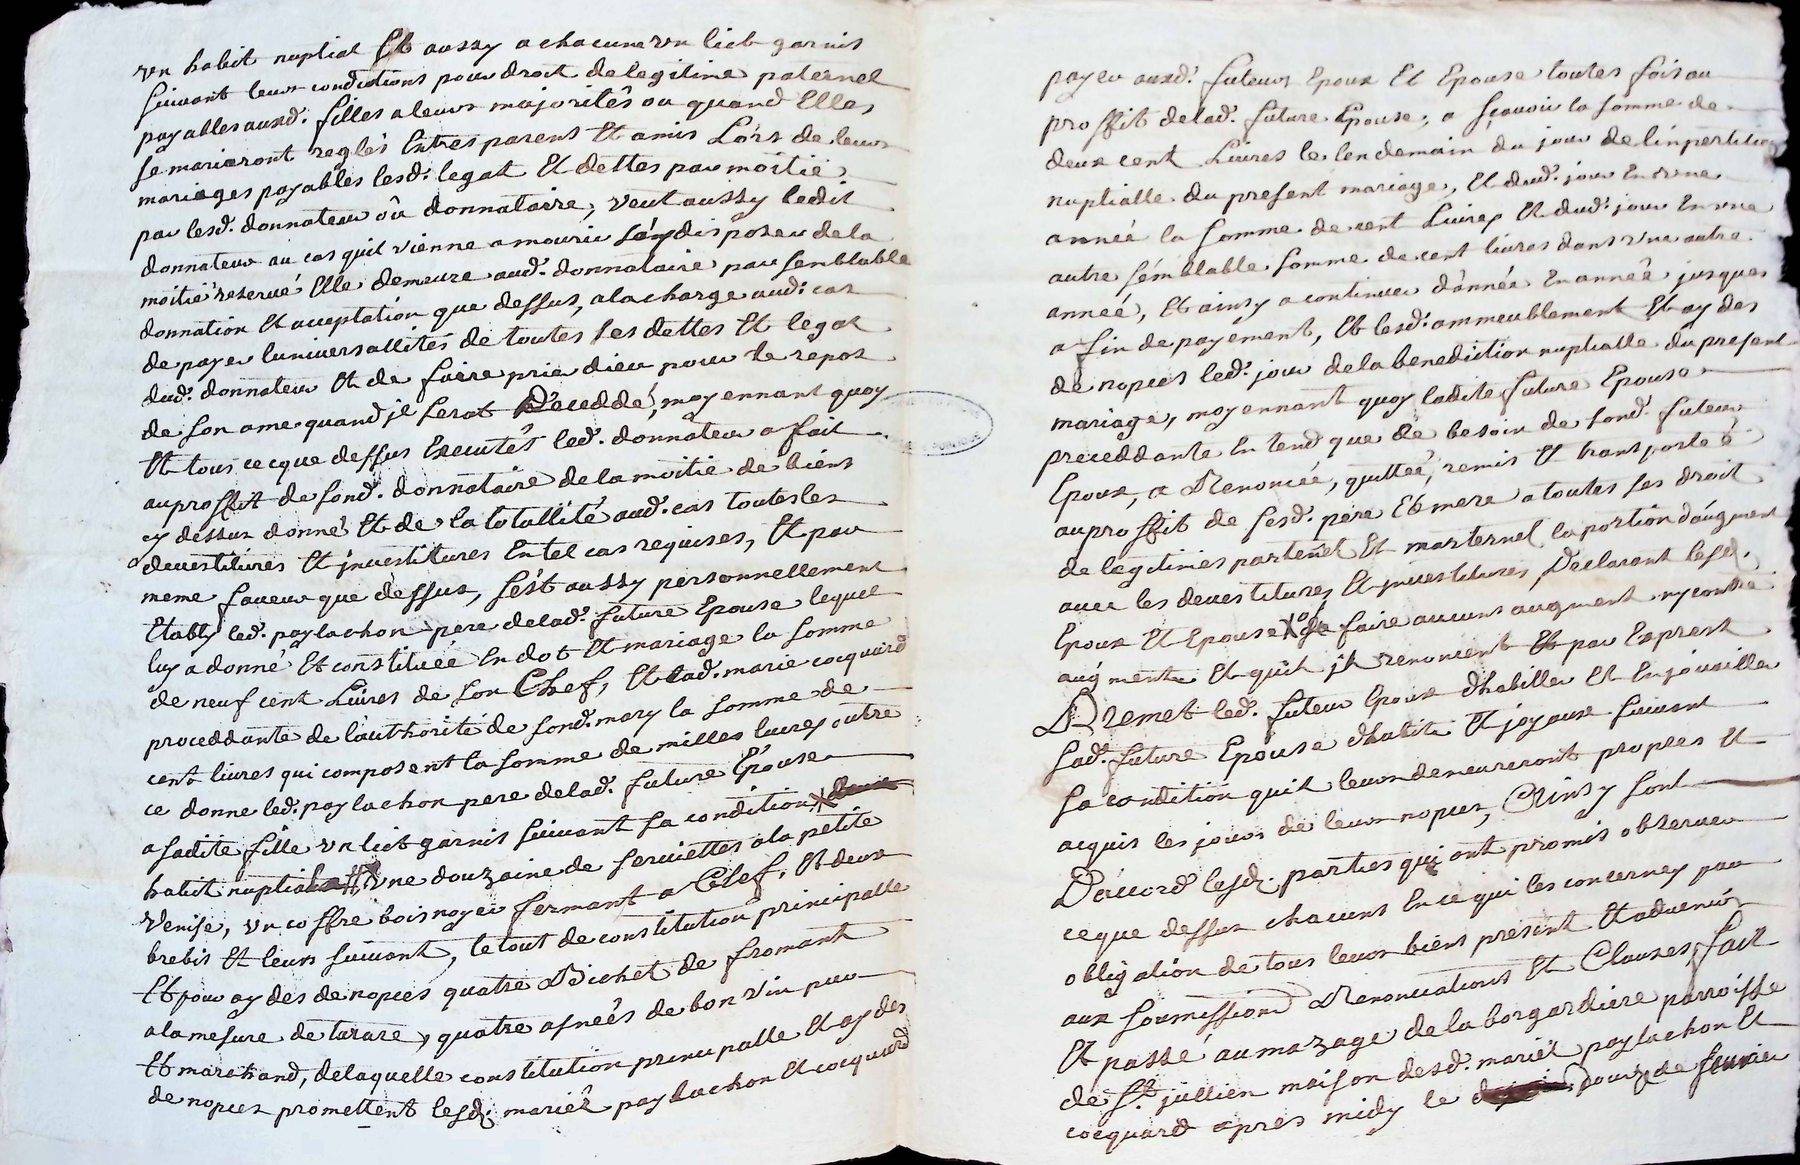 vn habit nuptial Et aussy a chacune vn lict garnis
suivant leurs conditions pour droit de legitime paternel
payables auxd. filles a leurs majorités ou quand Elles
se marieront reglés Entres parens Et amis Lors de leurs
mariages payables lesd. legat Et dettes par moitié
par lesd. donnateur où donnataire, veut aussy ledit
donnateur au cas quil vienne a mourir sans disposer de la
moitié reservé Elle demeure aud. donnataire par semblable
donnation Et acceptation que dessus, a la charge aud. cas
de payer luniversallités de toutes ses dettes Et legat
dud. donnateur Et de faire prier dieu pour le repos
de son ame quand jl serat Décedde, moyennant quoy
Et tous ce que dessus Executés led. donnateur a fait
au proffit de sond. donnataire de la moitie de biens
cy dessus donné Et de la totallité aud. cas toutes les
devestitures Et jnvestitures En tel cas requises, Et par
meme faveur que dessus, s'est aussy personnellement
Etably led. paylachon pere de lad. future Epouse lequel
luy a donné Et constituée En dot Et mariage la somme
de neuf cent Livres de son Chef, Et lad. marie cocquard
proceddante de l'authorité de sond. mary la somme de
cent livres qui composent la somme de milles livres outre
ce donne led. paylachon pere de lad. future Epouse
a sadite fille vn lict garnis suivant sa condition X
habit nuptial # vne douzaine de serviettes a la petite
Venise, vn coffre bois noyer fermant a Clef, Et deux
brebis Et leurs suivant, le tout de constitution principalle
Et pour aydes de nopces quatre Bichet de fromant
a la mesure de tarare, quatre asnées de bon vin pur
Et marchand, de laquelle constitution principalle Et aydes
de nopces promettent lesd. mariés paylachon Et cocquard
payer auxd. futeurs Epoux Et Epouse toutes fois au
proffit de lad. future Epouse, a sçavoir la somme de
deux cent Livres le lendemain du jour de linpertition
nuptialle du present mariage, Et dud. jour En vne
année la somme de cent Livres Et dud. jour En vne
autre semblable somme de cent livres dans vne autre
année, Et ainsy a continuer d'année En année jusques
a fin de payement, Et lesd. ammeublement Et aydes
de nopces led. jour de la benediction nuptialle du present
mariage, moyennant quoy ladite future Epouse
preceddante En tend que de besoin de sond. futeur
Epoux, a Renoncée, quittée, remis Et transporté
au proffit de sesd. pere Et mere a toutes ses droit
de legitimes parternel Et marternel la portion d'augment
avec les devestitures, Et jnvestitures, Declarant lesd.
Epoux Et Epouse X de faire aucuns augment ny contre
augment Et quil jl renoncent Et par Exprest
Promet led. futeur Epoux d'habiller Et Enjouailler
sad. future Epouse d'habits Et joyaux suivant
sa condition quil leurs demeureront propres Et
acquis les jours de leurs nopces, Ainsy sont
D'accord lesd. parties qui ont promis observer
ce que dessus chacuns En ce qui les concernes par
obligation de tous leurs biens present Et advenir
aux soumissions Renonciations Et Clauses, fait
Et passé au mazage de la borgardiere parroisse
de St. jullien maison desd. mariés paylachon Et
cocquard apres midy le douze de fevrier